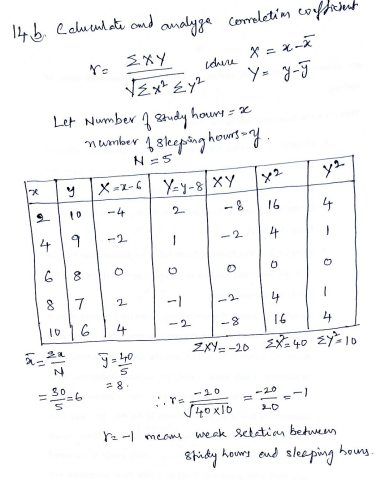 14 b. Calculate and analyze correlation coefficient
r = ΣXY / √ΣX² ΣY² where X = x - x̄
Y = y - ȳ
Let Number of study hours = x
number of sleeping hours = y.
N = 5
x y X = x-6 Y = y-8 XY X² Y²
2 10 -4 2 -8 16 4
4 9 -2 1 -2 4 1
6 8 0 0 0 0 0
8 7 2 -1 -2 4 1
10 6 4 -2 -8 16 4
ΣXY = -20 ΣX² = 40 ΣY² = 10
x̄ = Σx / N ȳ = 40 / 5
= 30 / 5 = 6 = 8.
∴ r = -20 / √40 × 10 = -20 / 20 = -1
r = -1 means weak relation between
study hours and sleeping hours.